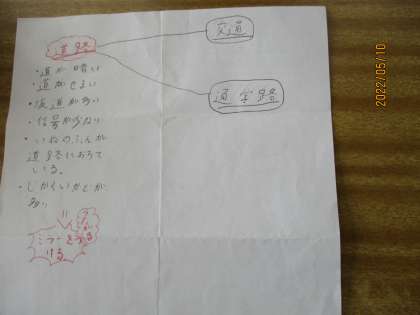 交通
道路
通学路
・道が暗い
・道がせまい
・坂道が多い
・信号が少ない
・いぬのふんが
道路におちて
いる。
・しかくいかどが
多い
ミラーを
ける
2022/05/10